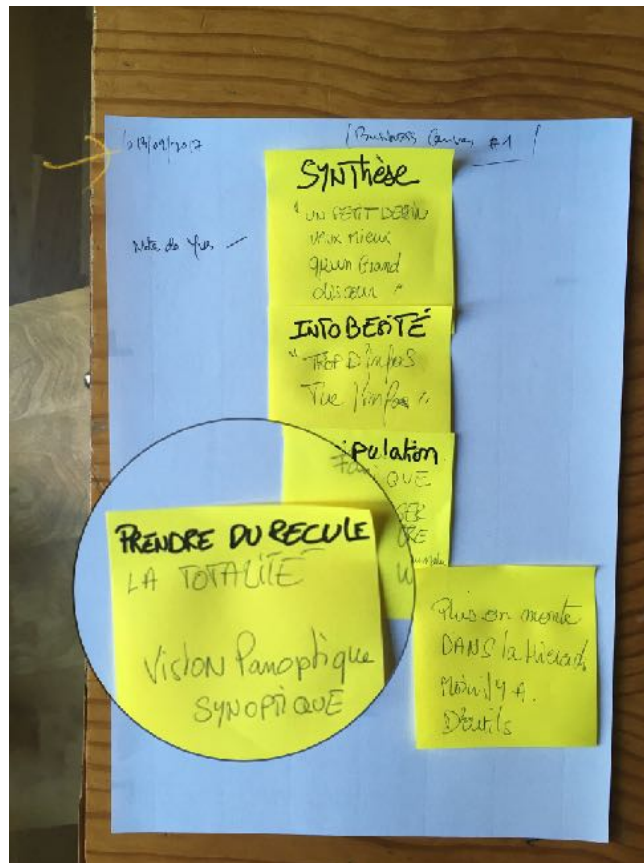 13/09/2017
Business Canvas #1
SYNThèSE
" UN PETIT DESSIN
VAUX MIEUX
QU'UN GRAND
discour "
Note de Yves —
INFOBESITÉ
" TROP D'infos
Tue l'info "
ipulation
QUE
GER
PRENDRE DU RECULE
LA TOTALITÉ
Vision Panoptique
SYNOPTIQUE
Plus on monte
DANS la Hierarch
Moin il Y A.
D'outils